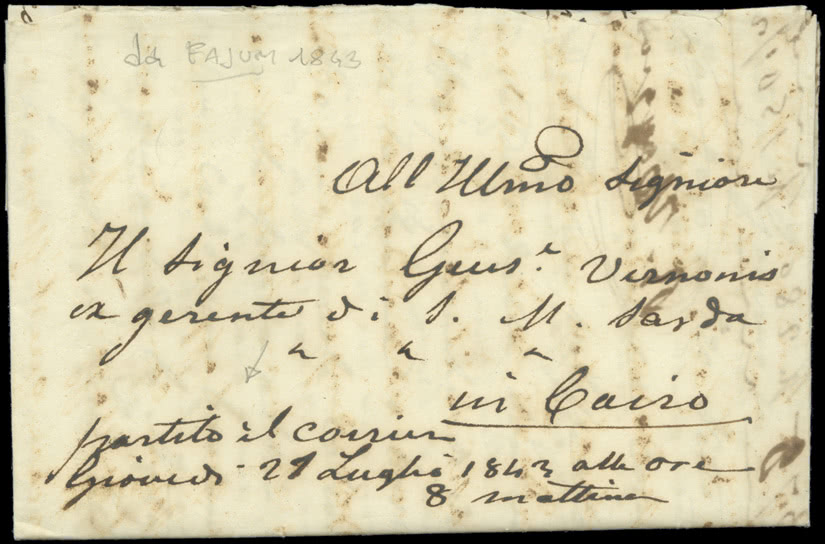 da FAJUM 1843
All Illmo Signiore
Il Signior Gius.e Vernonis
ex gerente di S. M. Sarda
" " "
in Cairo
partito il corrier
Giovedi 27 Luglio 1843 alle ore
8 mattina